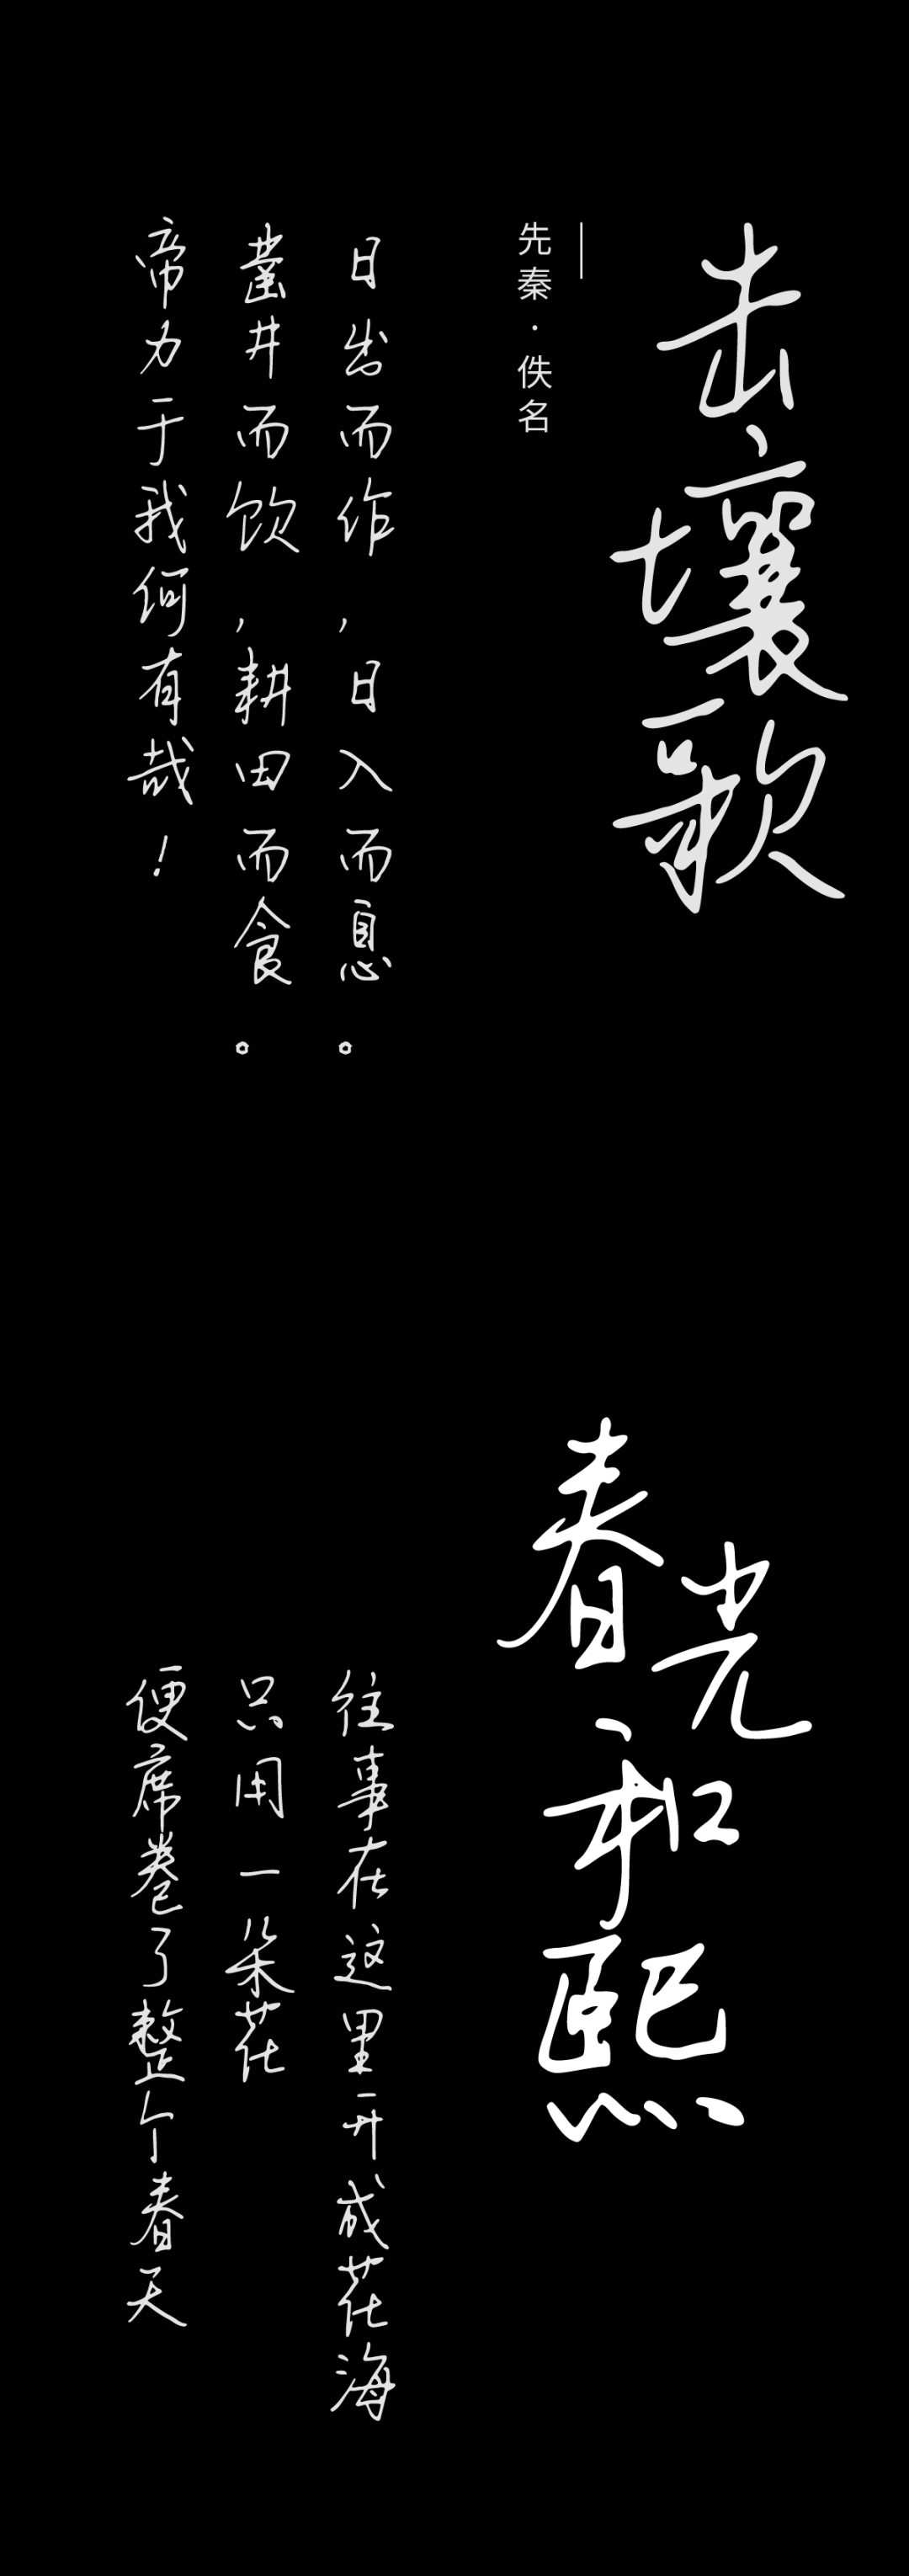 击壤歌
先秦·佚名
日出而作,日入而息。
凿井而饮,耕田而食。
帝力于我何有哉!
春光和熙
往事在这里开成花海
只用一朵花
便席卷了整个春天